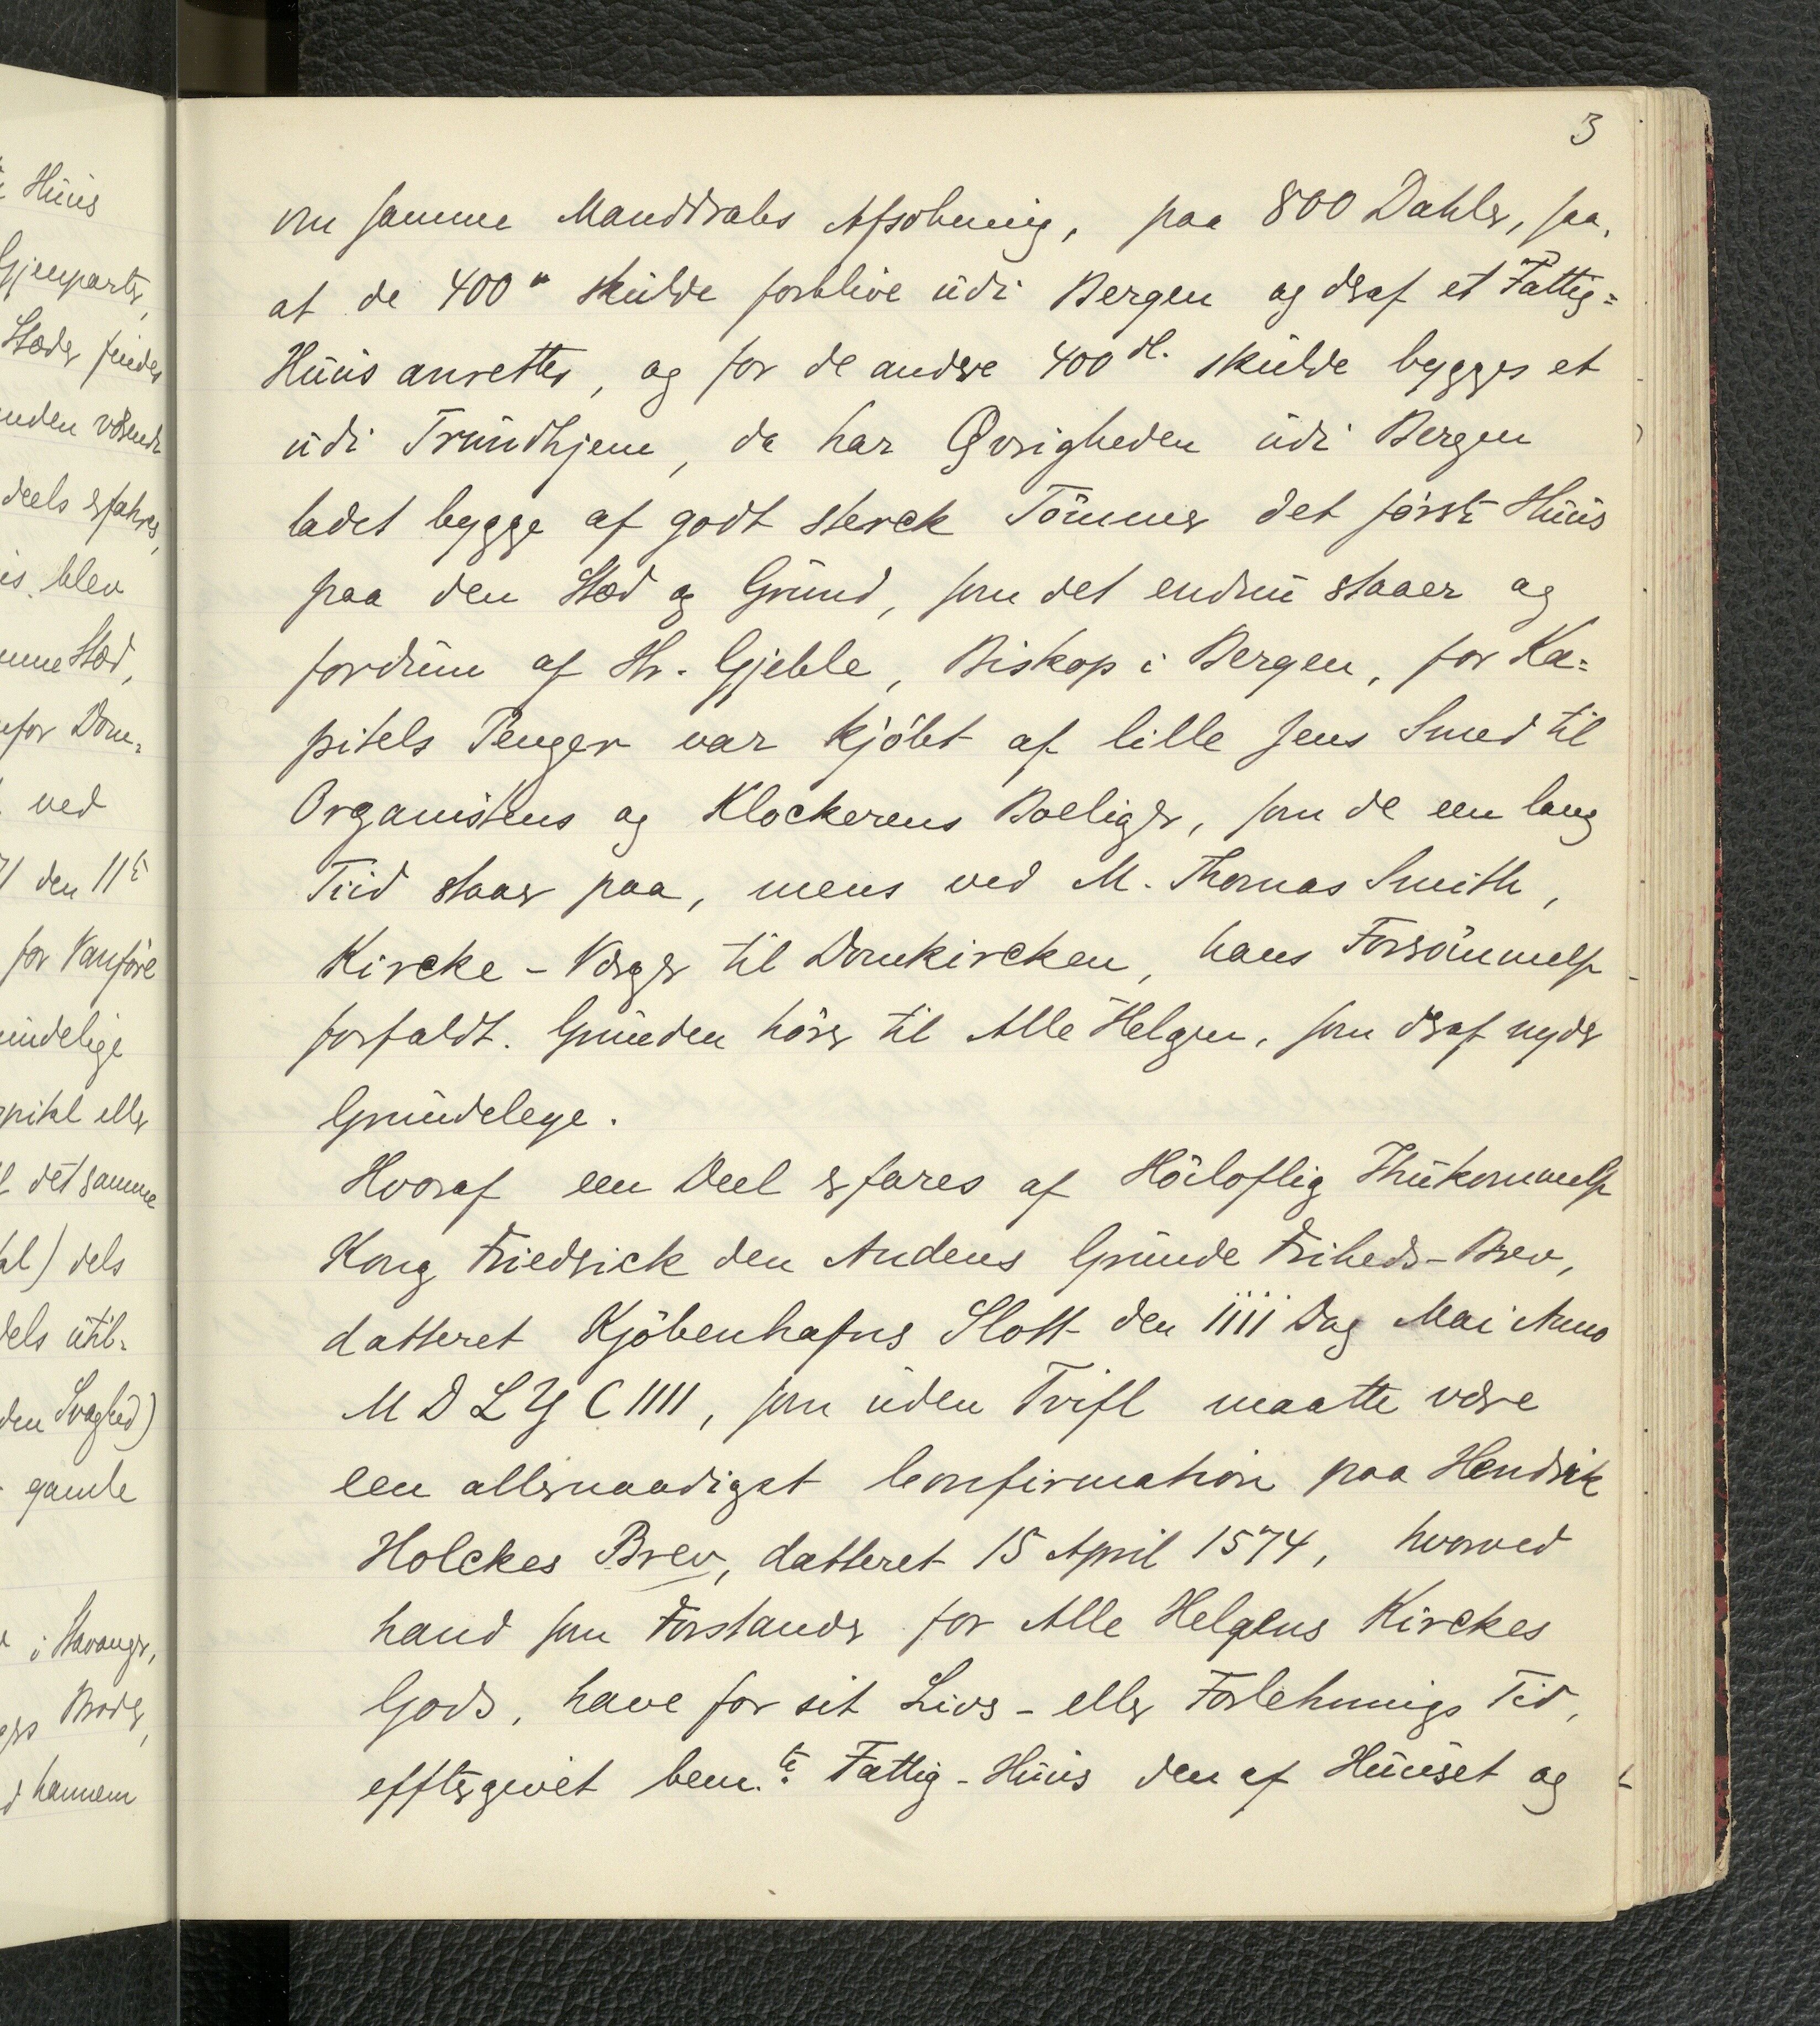 3
om samme Manddrabs Afsohning, paa 800 Dahler, saa,
at de 400" skulde forblive udi Bergen og deraf et Fattig=
Huus anrettes, og for de andere 400 dl. skulde bygges et
udi Trundhjem, da har Øvrigheden udi Bergen
ladet bygge af godt sterck Tömmer det förste Huus
paa den Stæd og Grund, som det endnu staaer og
fordum af Hr. Gjeble, Biskop i Bergen, for Ka=
pitels Penger var kjöbt af lille Jens Smed til
Organistens og Klockerens Boeliger, som de een lang
Tiid staar paa, mens ved M. Thomas Smith,
Kircke-Værger til Domkircken, hans Forsömmelse
forfaldt. Grunden hörer til Alle Helgen, som deraf nyder
Grundeleye.
Hvoraf een Deel erfares af Höiloflig Ihukommelse
Kong Friedrick den Andens Grunde Friheds-Brev,
datteret Kjöbenhafns Slott den IIII Dag Mai Anno
M D L Y C IIII, som uden Tvifl maatte være
een allernaadigst Confirmation paa Hendrik
Holckes Brev, datteret 15 April 1574, hvorved
hand som Forstander for Alle Helgens Kirckes
Gods, have for sit Livs- eller Forlehnings Tid,
efftergivet bem.te Fattig-Huus den af Huuset og
Huus
Gjenparter,
Stæder findes
deels erfahres,
blev
Stæd,
for Dom=
ved
den 11te
for Vanföre
eller
det samme
dels
dels util=
den Svaghed)
gamle
i Stavanger,
Broder,
hannem